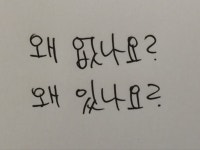 왜 없나요?
왜 있나요?